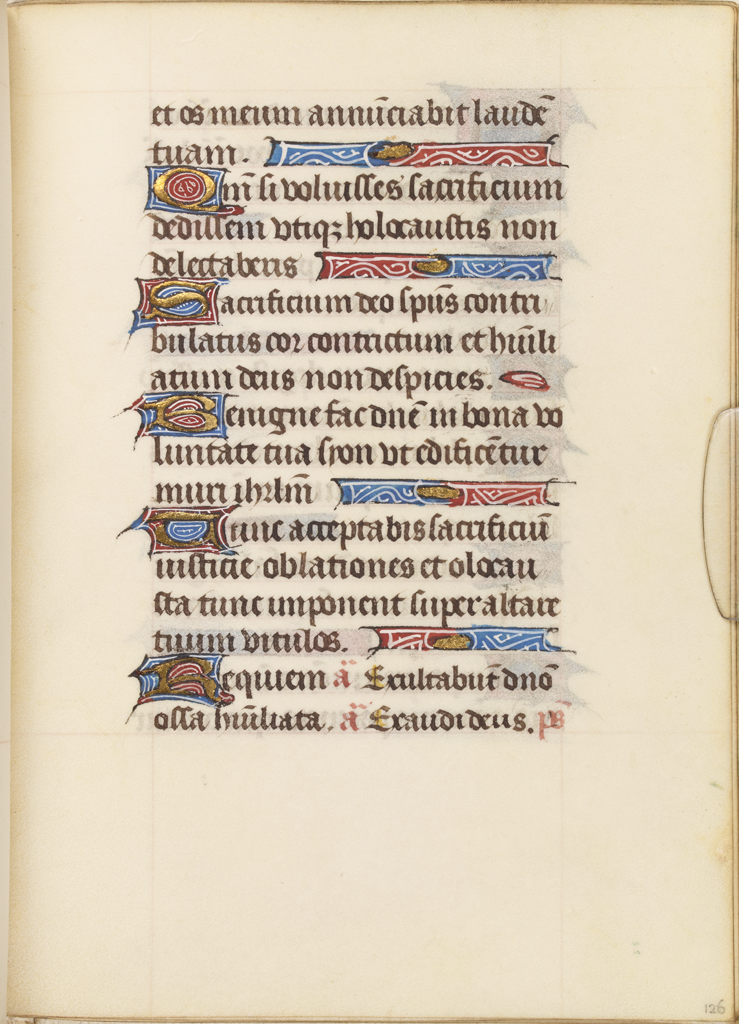 et os meum annūciabit laudē
tuam.
Qm̄ si voluisses sacrificium
dedissem vtiqꝫ holocaustis non
delectaberis
Sacrificium deo sp̄us contri
bulatus cor contrictum et hūili
atum deus non despicies.
Benigne fac dnē in bona vo
luntate tua syon vt edificētur
muri ihrlm̄
Tunc acceptabis sacrificiū
iusticie oblationes et olocau
sta tunc imponent super altare
tuum vitulos.
Requiem a᷈ Exultabūt dn̄o
ossa hūiliata. a᷈ Exaudi deus. ps̄
126